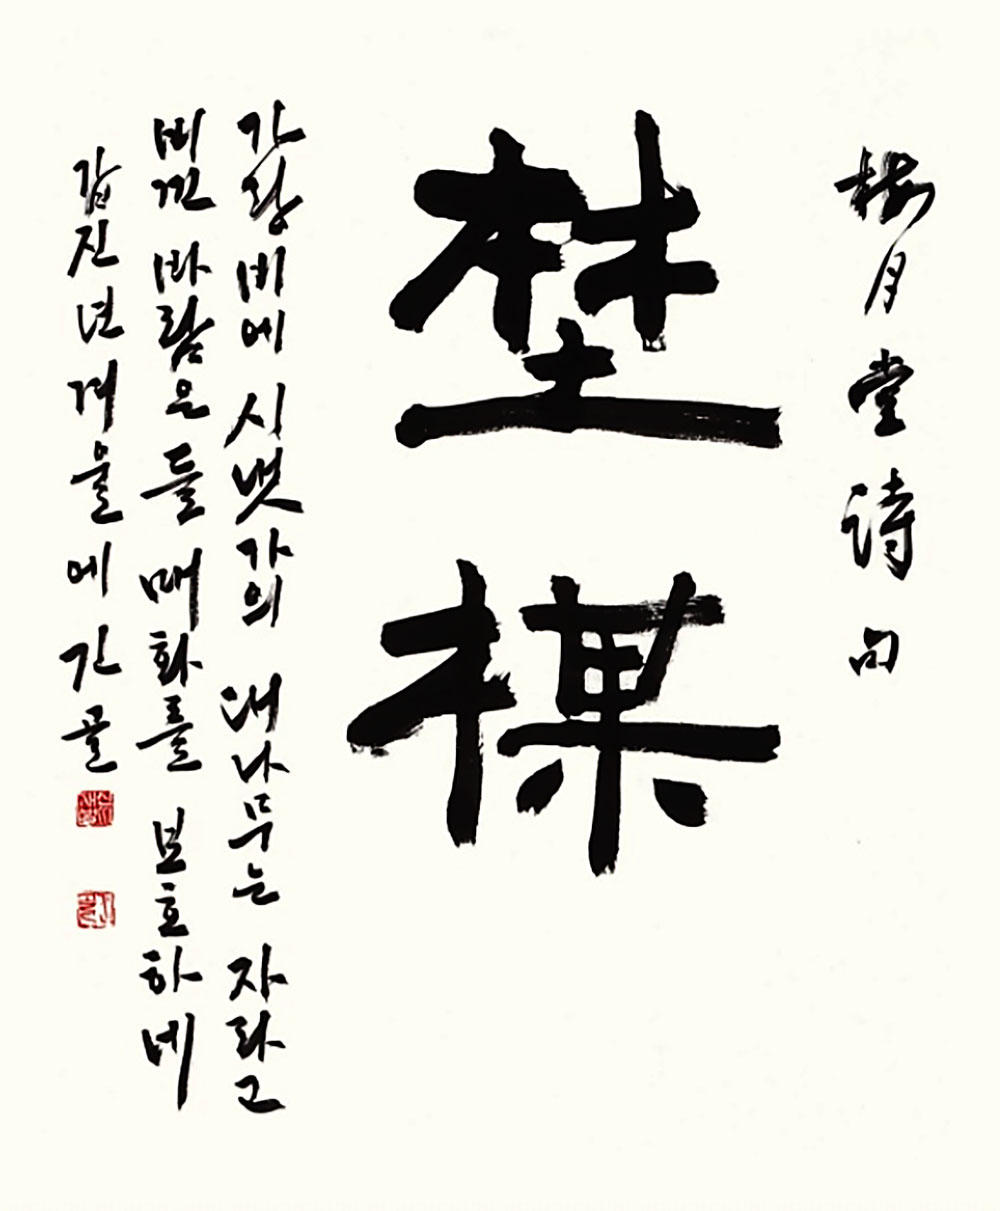 梅月堂詩句
埜楳
가랑비에 시냇가의 대나무는 자라고
비낀 바람은 들매화를 보호하네
갑진년 겨울에 긴골